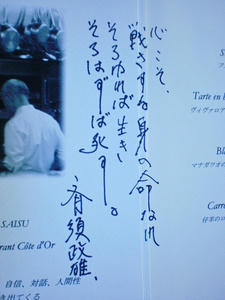 心こそ、
戦さする身の命なれ
そろゆれば生き
そろはずば死す。
斉須政雄、
SAISU
rant Côte d'Or
自信、対話、人間性
き出てくる
S
フ
Tarte en l
ヴィヴァロア
Bla
マナガツオの
Carre
仔羊のロ